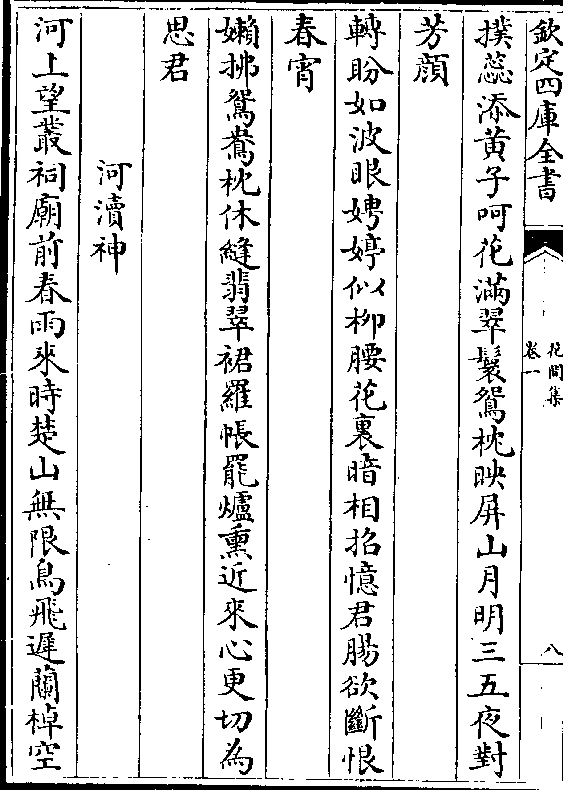 欽定四庫全書
花間集
卷一
八
撲蕊添黄子呵花滿翠鬟鴛枕映屏山月明三五夜對
芳顔
轉盼如波眼娉婷似柳腰花裏暗相招憶君腸欲斷恨
春宵
嬾拂鴛鴦枕休縫翡翠裙羅帳罷爐熏近來心更切為
思君
河瀆神
河上望叢祠廟前春雨來時楚山無限鳥飛遲蘭棹空